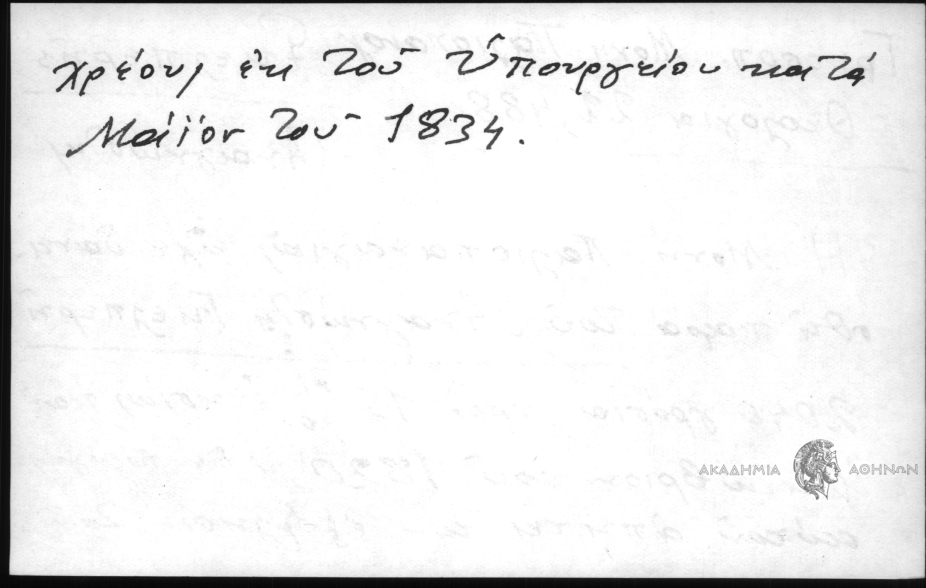 χρέους ἐκ τοῦ Ὑπουργείου κατά
Μάϊον τοῦ 1834.
ΑΚΑΔΗΜΙΑ ΑΘΗΝΩΝ